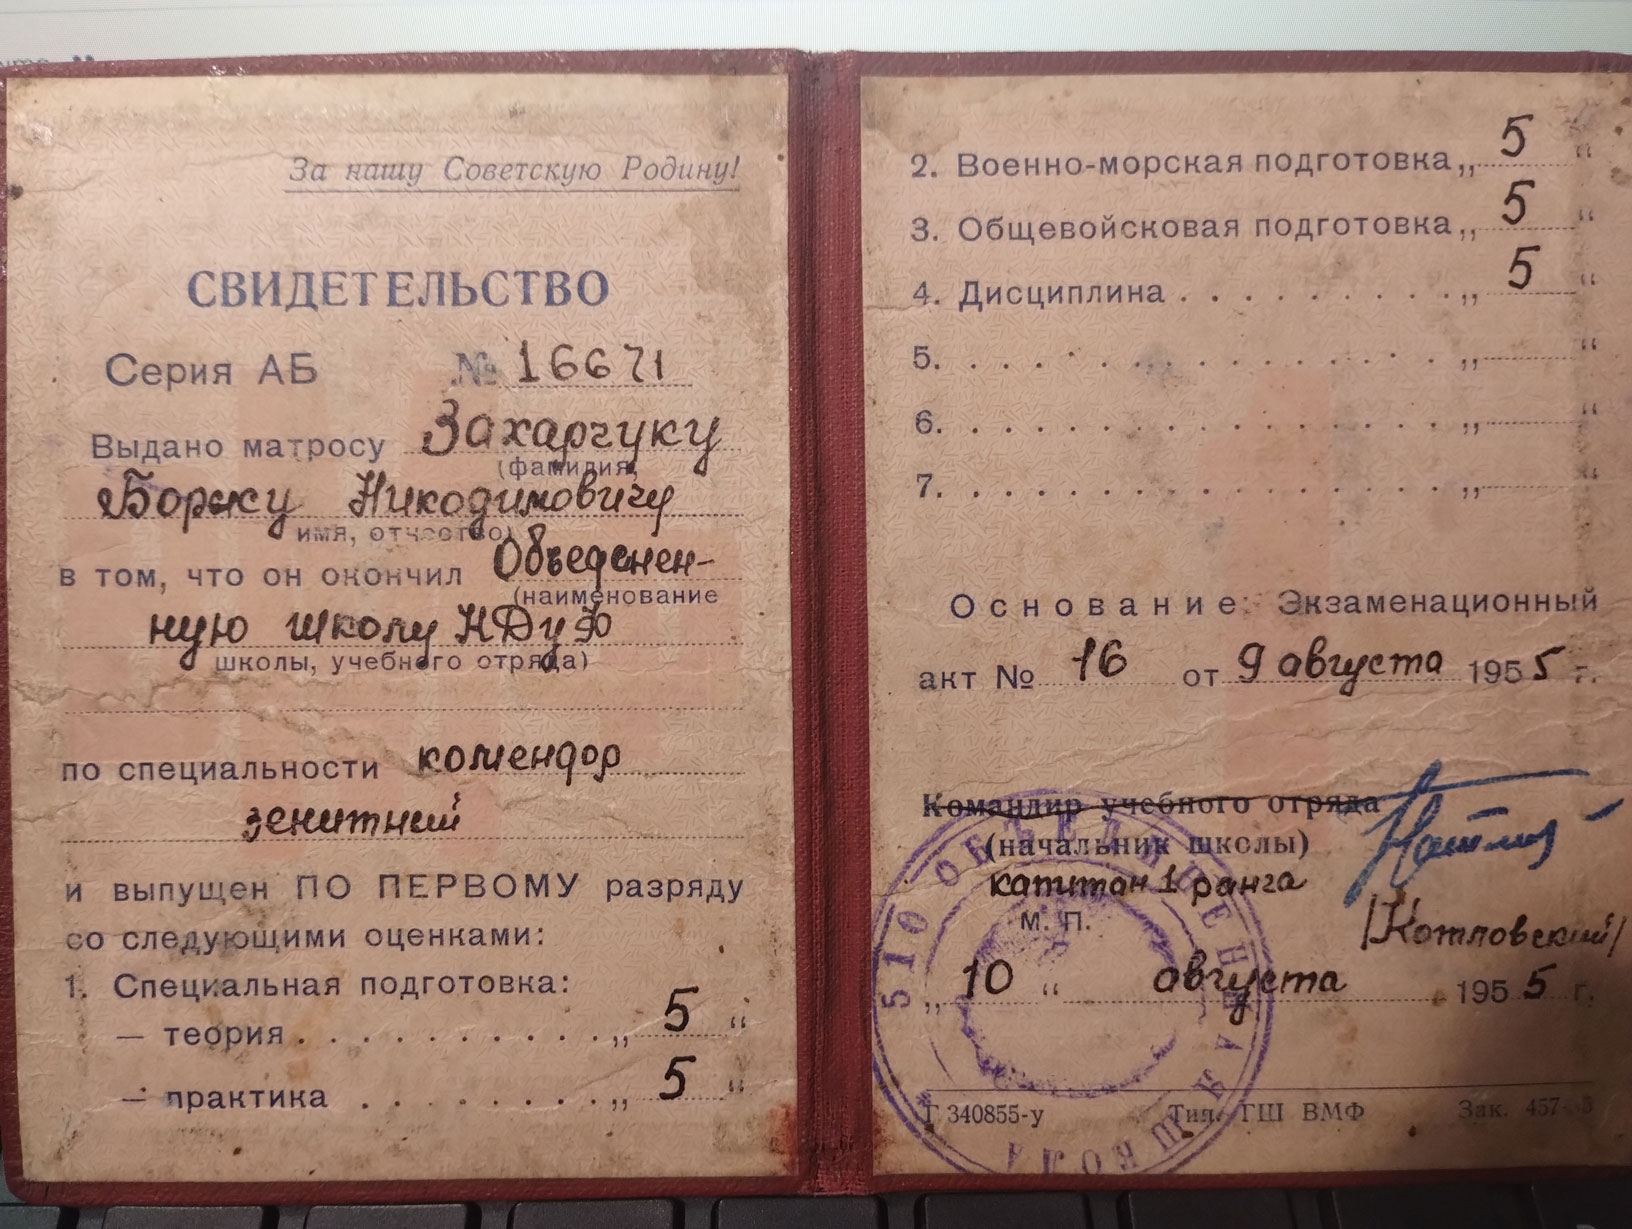 За нашу Советскую Родину!
СВИДЕТЕЛЬСТВО
Серия АБ № 16671
Выдано матросу Захарчуку
(фамилия,
Борису Никодимовичу
имя, отчество)
в том, что он окончил Объеденен-
(наименование
ную школу НДуФ
школы, учебного отряда)
по специальности комендор
зенитный
и выпущен ПО ПЕРВОМУ разряду
со следующими оценками:
1. Специальная подготовка:
— теория . . . . . . . . . . „ 5 “
— практика . . . . . . . . „ 5 “
2. Военно-морская подготовка „ 5 “
3. Общевойсковая подготовка „ 5 “
4. Дисциплина . . . . . . . . . „ 5 “
5. . . . . . . . . . . . . . . „ “
6. . . . . . . . . . . . . . . „ “
7. . . . . . . . . . . . . . . „ “
Основание: Экзаменационный
акт № 16 от 9 августа 1955 г.
Командир учебного отряда
(начальник школы)
капитан 1 ранга
М. П.
/Котловский/
„ 10 “ августа 1955 г.
510 ОБЪЕДИНЕННАЯ ШКОЛА
Г 340855-у Тип. ГШ ВМФ Зак.